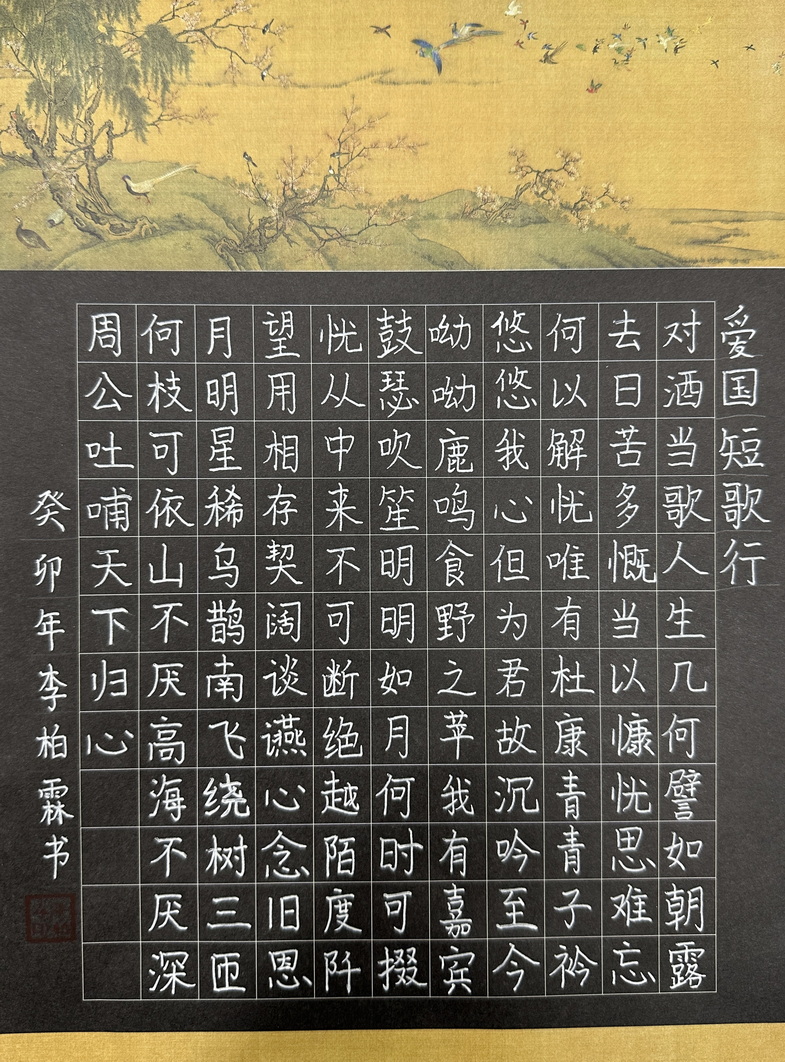 爱国短歌行
对洒当歌人生几何譬如朝露
去日苦多慨当以慷忧思难忘
何以解忧唯有杜康青青子衿
悠悠我心但为君故沉吟至今
呦呦鹿鸣食野之苹我有嘉宾
鼓瑟吹笙明明如月何时可掇
忧从中来不可断绝越陌度阡
望用相存契阔谈讌心念旧恩
月明星稀乌鹊南飞绕树三匝
何枝可依山不厌高海不厌深
周公吐哺天下归心
癸卯年李柏霖书